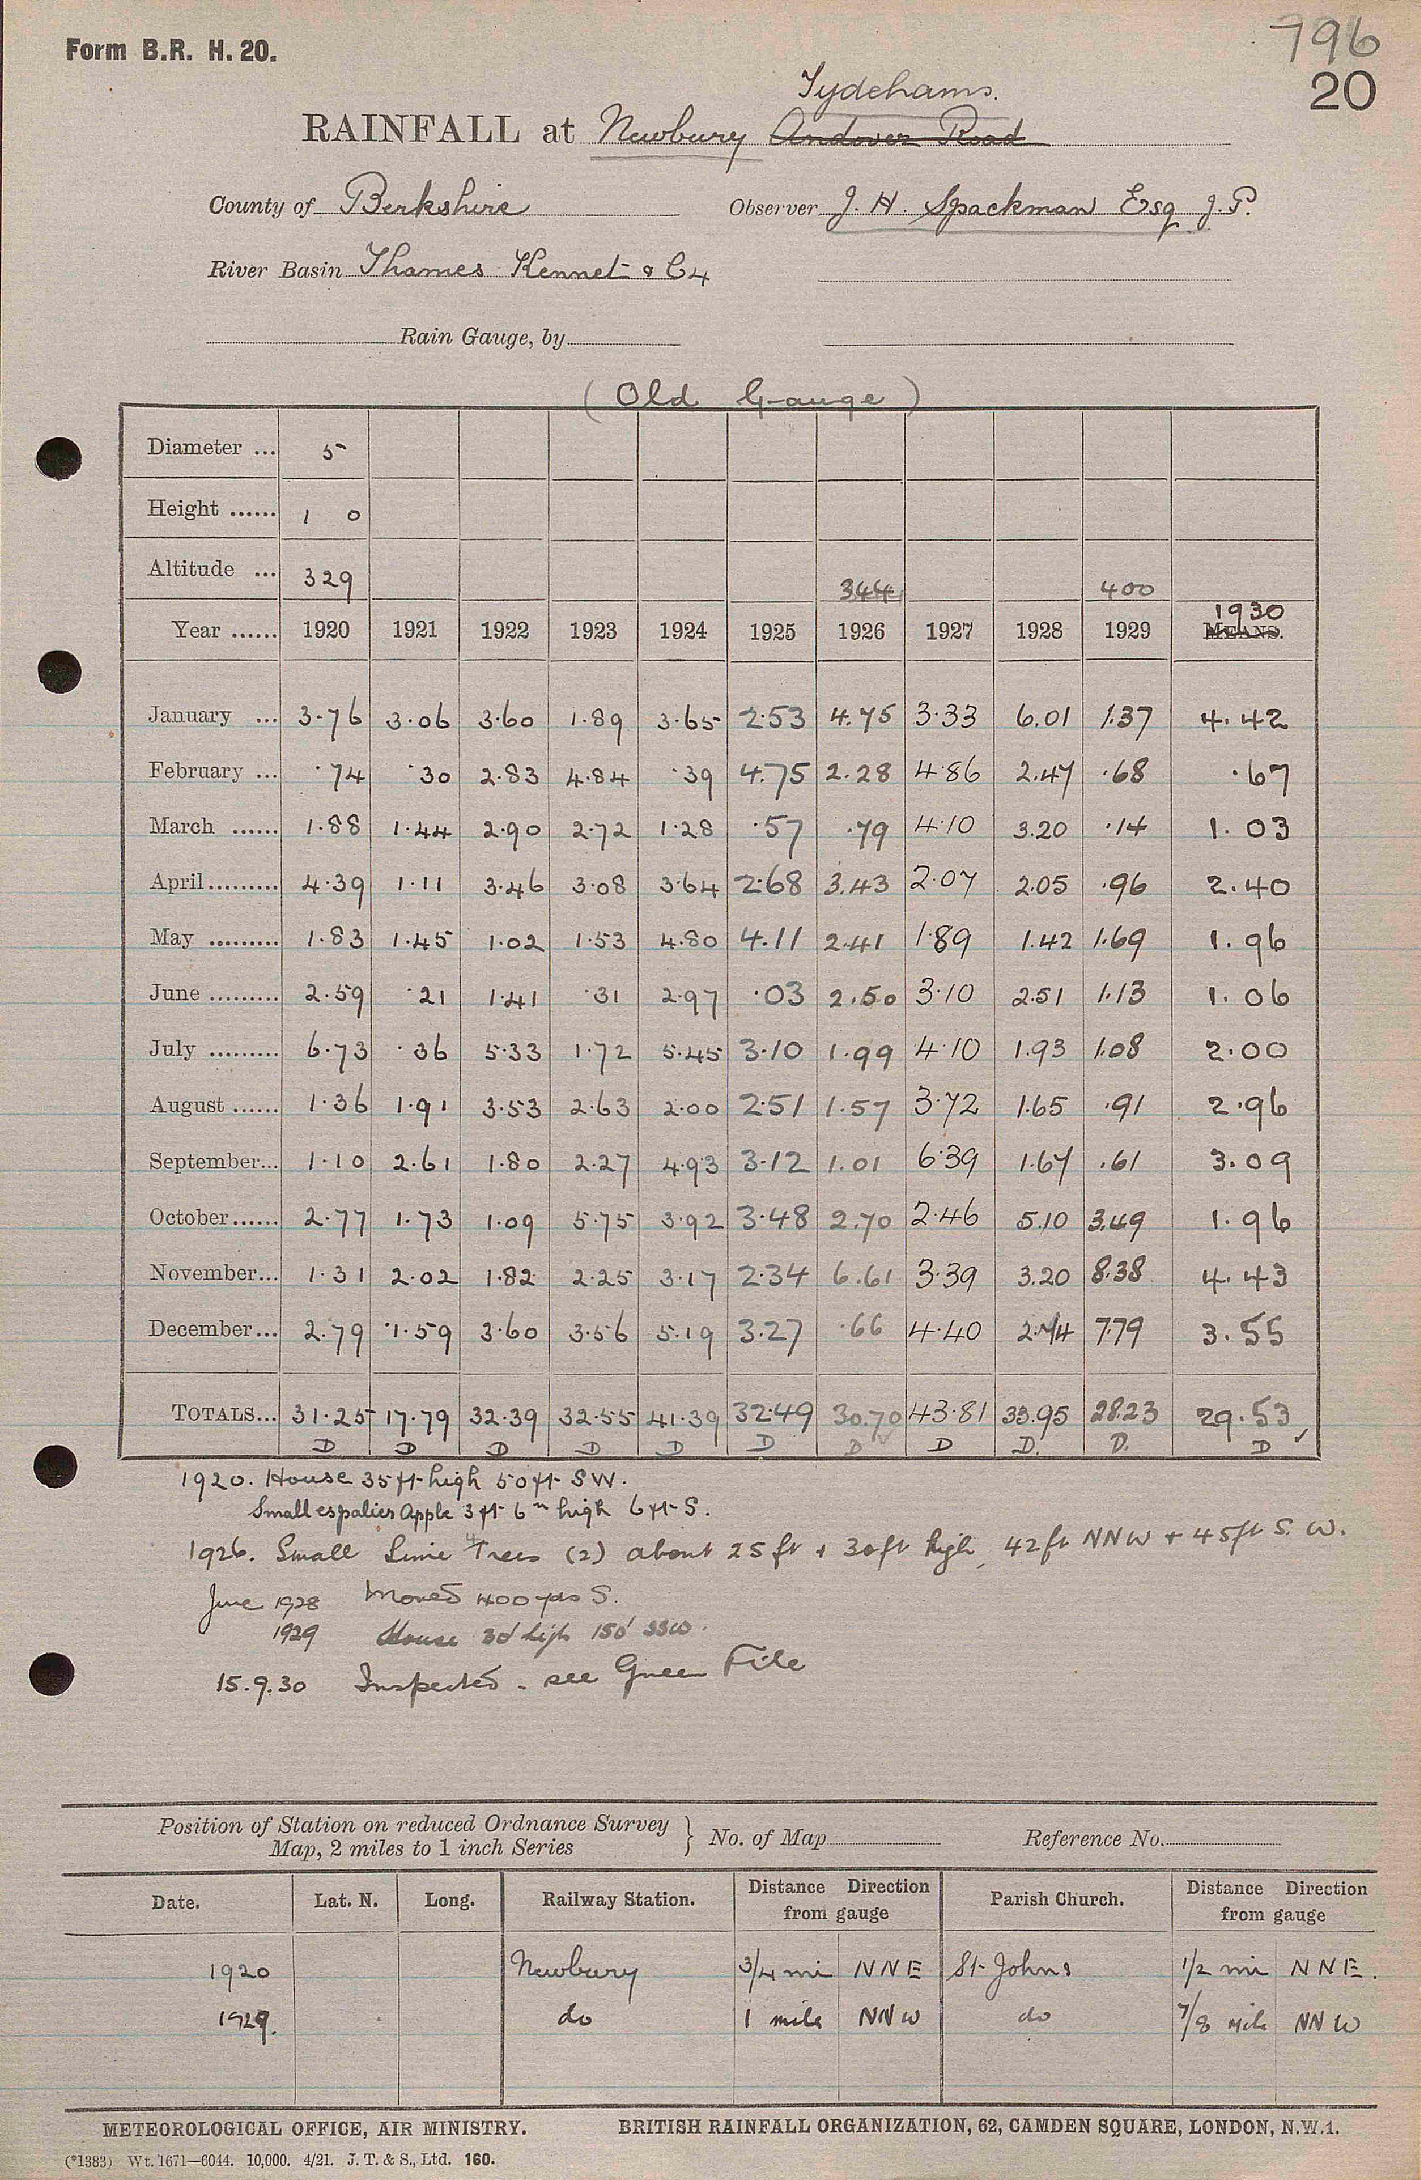 796
Form B.R. H. 20.
20
Tydehams.
RAINFALL at Newbury Andover Road
County of Berkshire Observer J. H. Spackman Esq J.P.
River Basin Thames Kennet & C4
Rain Gauge, by
(Old Gauge)
Diameter ... 5
Height ...... 1 0
Altitude ... 329 344 400
1930
Year ...... 1920 1921 1922 1923 1924 1925 1926 1927 1928 1929 MEANS.
January ... 3.76 3.06 3.60 1.89 3.65 2.53 4.75 3.33 6.01 1.37 4.42
February ... .74 .30 2.83 4.84 .39 4.75 2.28 4.86 2.47 .68 .67
March ...... 1.88 1.44 2.90 2.72 1.28 .57 .79 4.10 3.20 .14 1.03
April ......... 4.39 1.11 3.46 3.08 3.64 2.68 3.43 2.07 2.05 .96 2.40
May ......... 1.83 1.45 1.02 1.53 4.80 4.11 2.41 1.89 1.42 1.69 1.96
June ......... 2.59 .21 1.41 .31 2.97 .03 2.50 3.10 2.51 1.13 1.06
July ......... 6.73 .36 5.33 1.72 5.45 3.10 1.99 4.10 1.93 1.08 2.00
August ...... 1.36 1.91 3.53 2.63 2.00 2.51 1.57 3.72 1.65 .91 2.96
September... 1.10 2.61 1.80 2.27 4.93 3.12 1.01 6.39 1.67 .61 3.09
October ...... 2.77 1.73 1.09 5.75 3.92 3.48 2.70 2.46 5.10 3.49 1.96
November... 1.31 2.02 1.82 2.25 3.17 2.34 6.61 3.39 3.20 8.38 4.43
December... 2.79 1.59 3.60 3.56 5.19 3.27 .66 4.40 2.74 7.79 3.55
TOTALS... 31.25 17.79 32.39 32.55 41.39 32.49 30.70 43.81 33.95 28.23 29.53
D D D D D D D D D. D. D
1920. House 35ft high 50ft SW.
Small espalier Apple 3ft 6in high 6ft S.
1926. Small Lime Trees (2) about 25ft & 30ft high, 42ft NNW + 45ft S.W.
June 1928 Moved 400 yds S.
1929 House 30' high 150' SSW.
15.9.30 Inspected - see Green File
Position of Station on reduced Ordnance Survey
Map, 2 miles to 1 inch Series } No. of Map Reference No.
Date. Lat. N. Long. Railway Station. Distance Direction from gauge Parish Church. Distance Direction from gauge
1920 Newbury 3/4 mi NNE St Johns 1/2 mi NNE.
1929. do 1 mile NNW do 7/8 mile NNW
METEOROLOGICAL OFFICE, AIR MINISTRY. BRITISH RAINFALL ORGANIZATION, 62, CAMDEN SQUARE, LONDON, N.W.1.
(*1383) Wt. 1671—6044. 10,000. 4/21. J. T. & S., Ltd. 160.